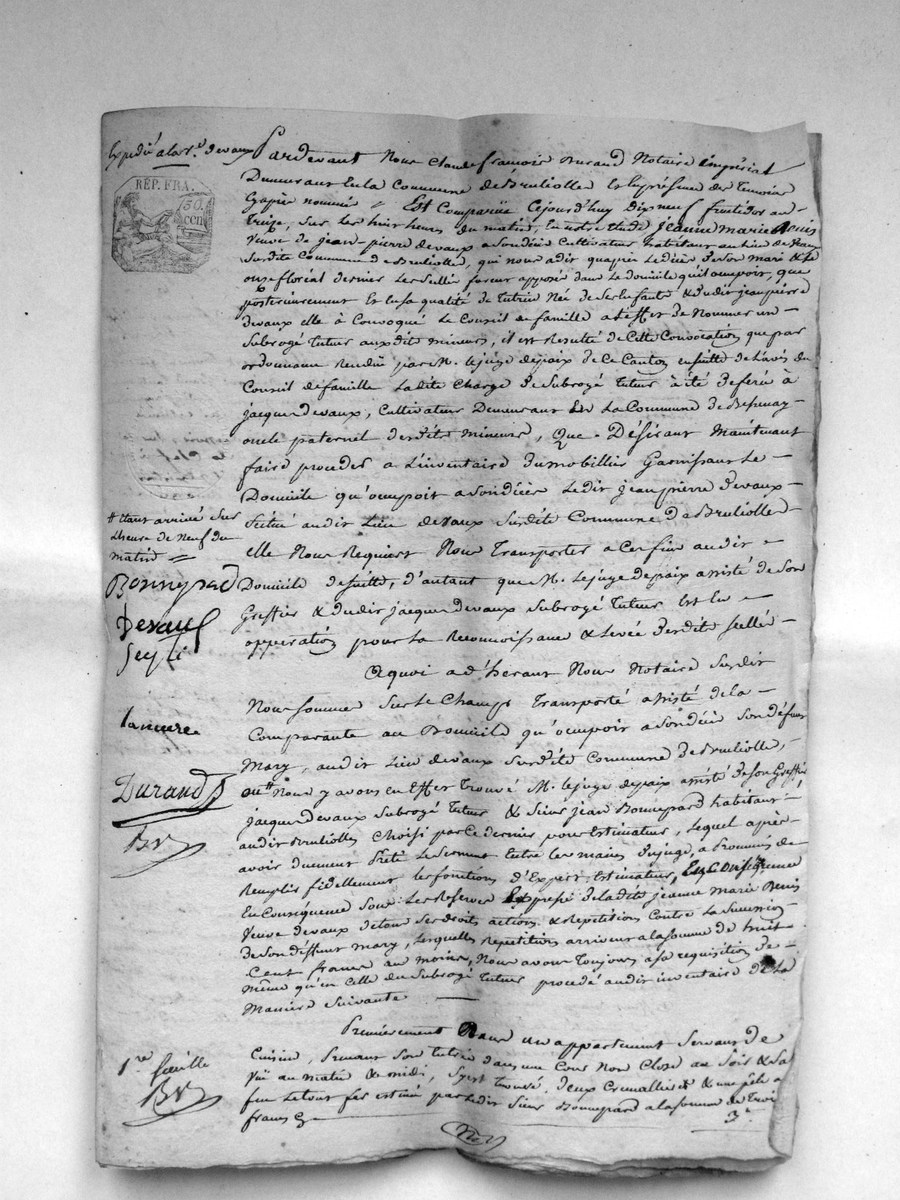 Expedié a la ve. devaux
REP. FRA.
150
cen
Pardevant Nous Claude francois Durand Notaire imperial
Demeurant En la Commune de Brulliolle Et En présence des Temoins
Cyaprès nommés = Est Comparüe Cejourd'huy dix neuf fructidor an
treize, Sur Les huit heures du matin, En notre Etude, jeanne Marie Benis
veuve de jean-pierre devaux a Son décès Cultivateur habitant au Lieu de devaux
Susdite Commune de Brulliolle, qui nous a dit qu'après Le décès de Son mari Le
onze floréal dernier Les Scellés furent apposés dans Le domicile qu'il occupoit, que
posterieurement Et En Sa qualité de Tutrice Née de Ses Enfants & dudit jean pierre
devaux elle à Convoqué Le Conseil de famille a L'effet de Nommer un
Subrogé Tuteur auxdits mineurs, il est Resulté de Cette Convocation que par
ordonnance Rendüe par M. Lejuge depaix de Ce Canton Ensuitte de L'avis du
Conseil de famille Ladite Charge de Subrogé Tuteur à été déferée à
jacque devaux, Cultivateur Demeurant En La Commune de Bessenay
oncle paternel desdits mineurs, Que Désirant Maintenant
faire proceder a L'inventaire du mobillier Garnissant Le
Domicile qu'occupoit a Son décès Ledit jean pierre devaux -
Situé audit Lieu devaux Susdite Commune de Brulliolle
elle Nous Requiert Nous Transporter a Ces fins audit =
Domicile de Suitte, d'autant que M. Lejuge depaix assisté de Son
Greffier & dudit jacque devaux Subrogé Tuteur Est En =
opperation pour La Reconnoissance & Levée desdits Scellés -
# Etant arrivé Sur
L'heure de Neuf du
matin =
Bonnepard
Devaux
Durand
A quoi adhérant Nous Notaire Susdit
Nous Sommes Sur Le Champ Transporté assisté de La -
Comparante au Domicile qu'occupoit a Son décès Son défunt
Mary, audit Lieu devaux Susdite Commune de Brulliolle, -
ou # Nous y avons en Effet Trouvé M. Lejuge depaix assisté de Son Greffier,
jacque devaux Subrogé Tuteur & Sieur jean Bonnepard habitant -
audit Brulliolles Choisi par Ce dernier pour Estimateur, Lequel après
avoir duement Prêté Le Serment Entre Les mains dujuge, a Promis de
Remplir fidellement Les fonctions d'Expert Estimateur,
En Consequence Sous Les Reserves Expresses de Ladite jeanne Marie Benis
Veuve devaux de tous Ses droits actions & Repetitions Contre La Succession
de Son deffunt mary, Lesquelles Repetitions arrivent a la Somme de huit
Cent francs au moins, Nous avons Toujours a Sa requisition de
même qu'en Celle du Subrogé Tuteur procedé audit inventaire de La
Maniere Suivante
Premierement Dans un appartement Servant de
Cuisine, Prenant Son Entrée dans une Cour Non Close au Soir & Sa
Vüe au matin & midi, S'yest Trouvé deux Cremallieres & une pêle a
feu Le tout fer estimé par Ledit Sieur Bonnepard a la Somme de Trois
francs
3.
1re. feuille